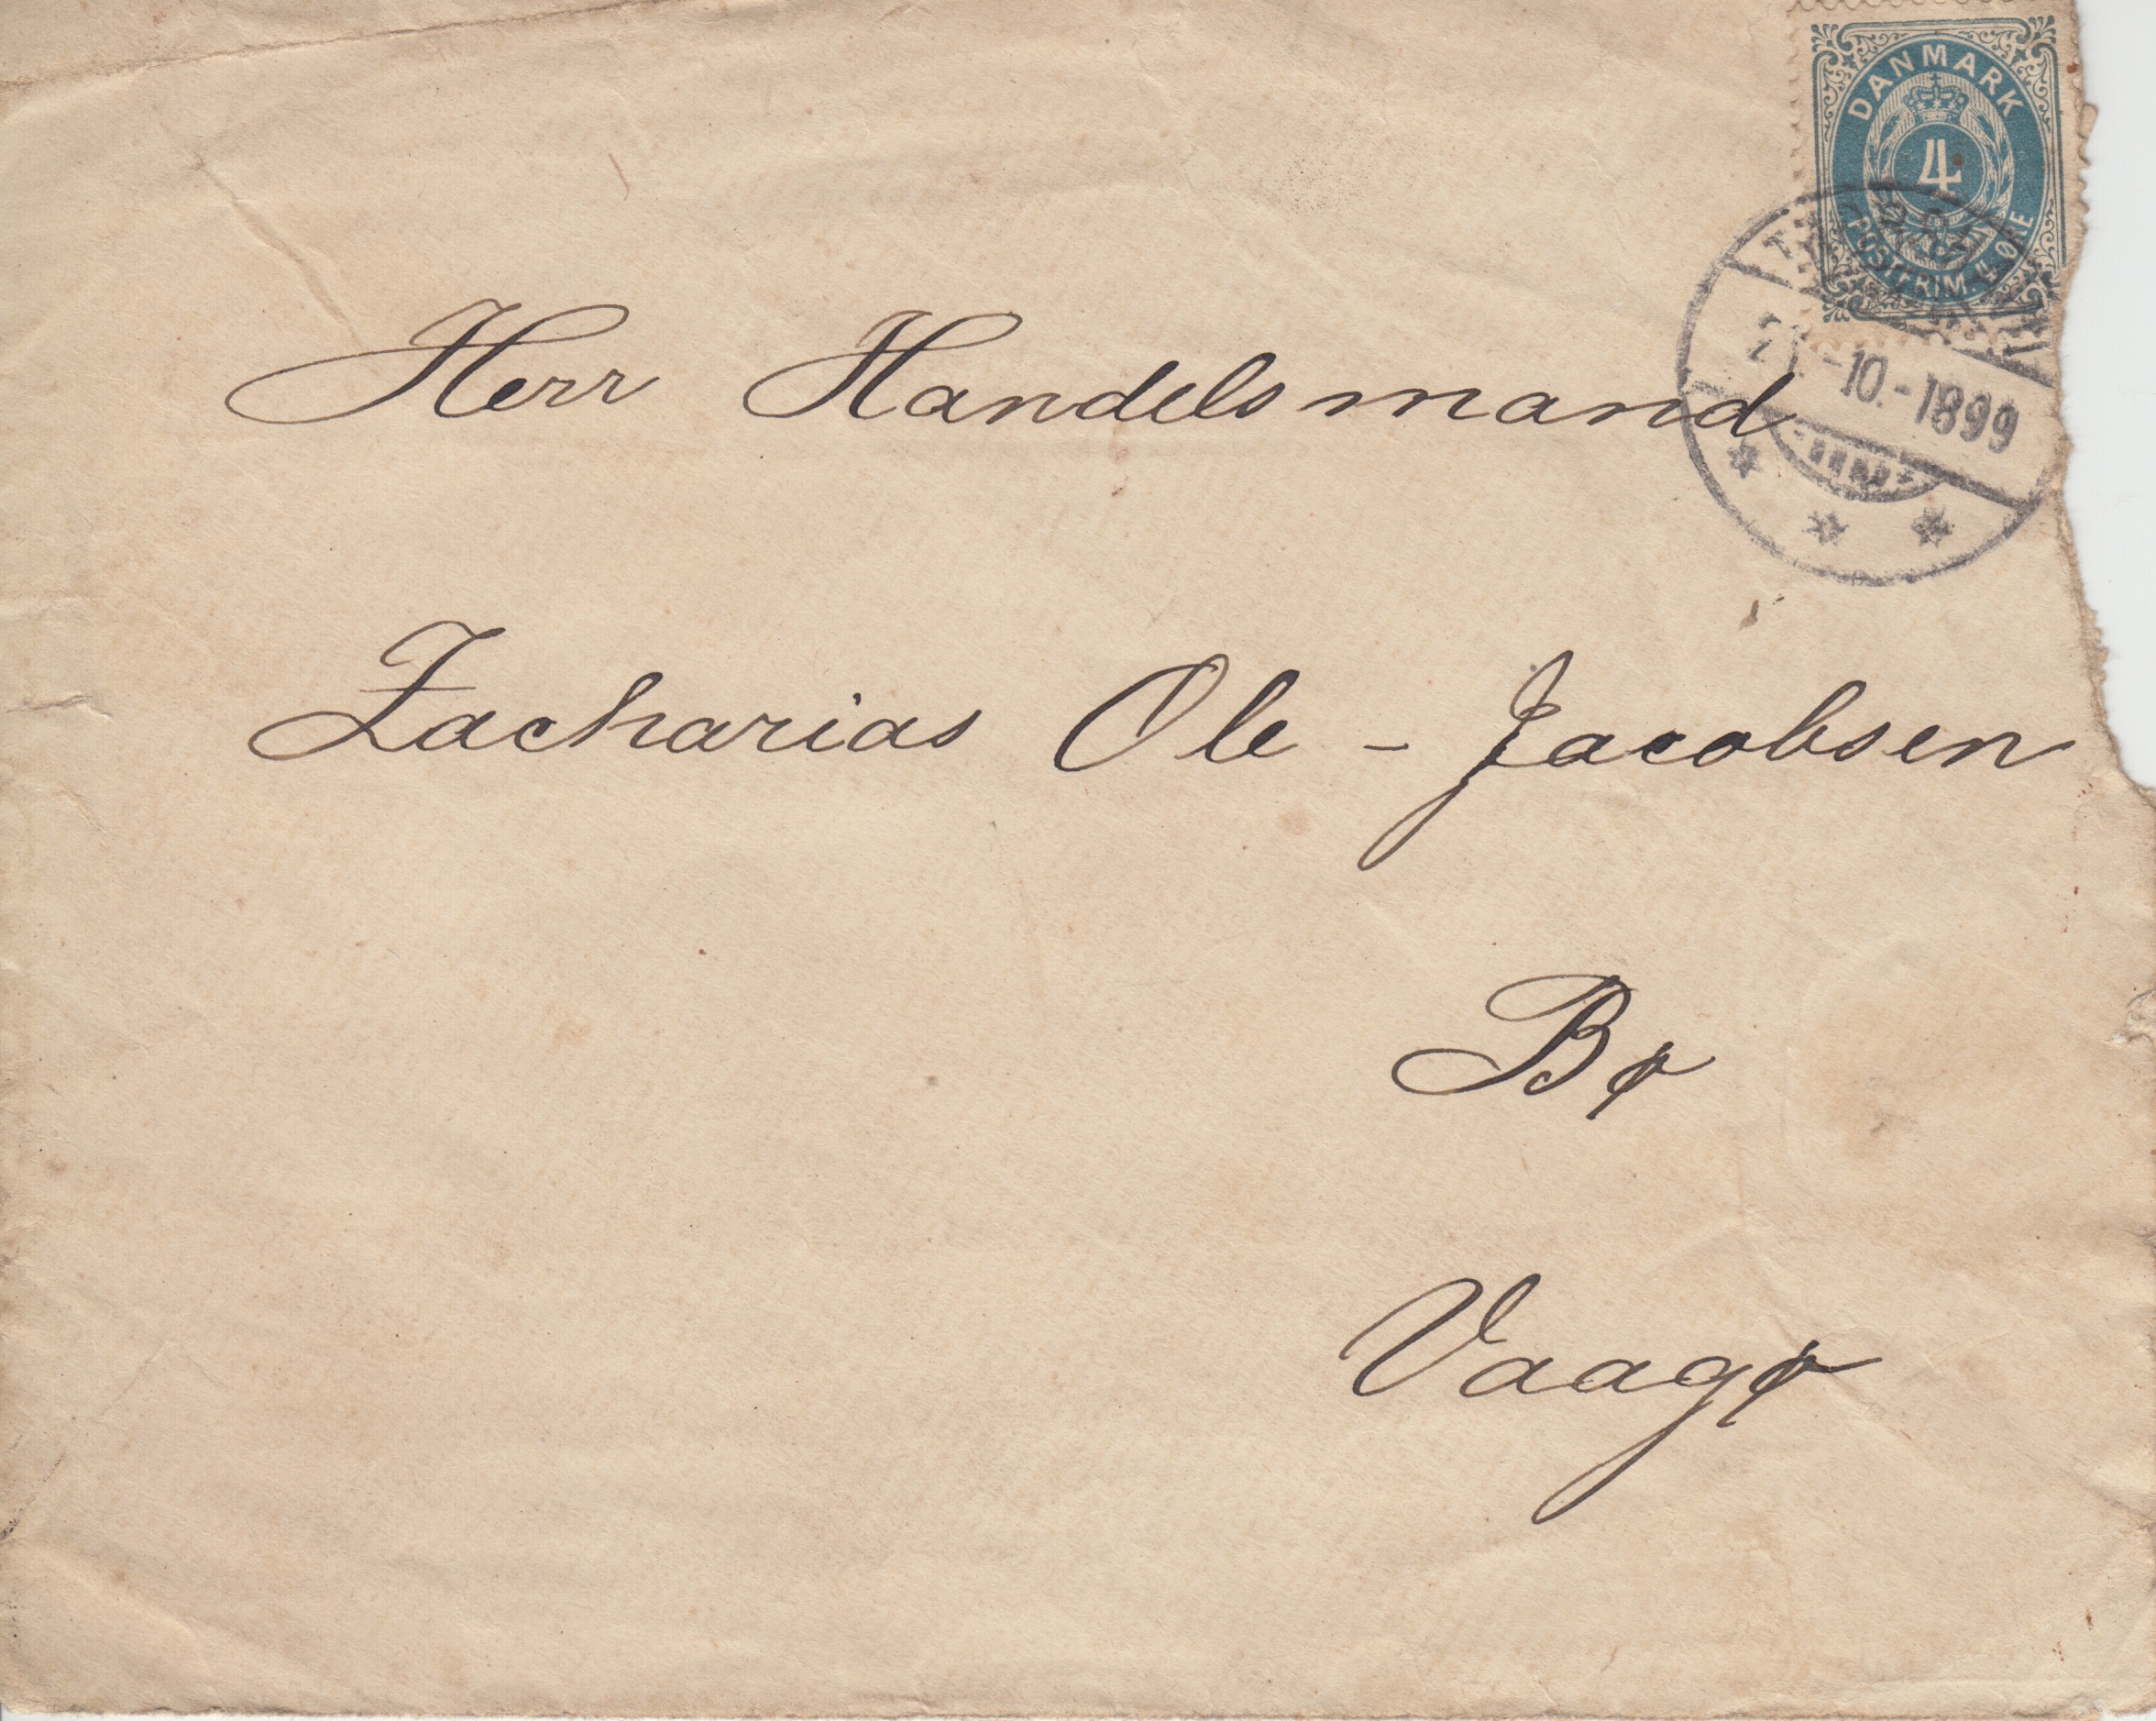 DANMARK
4
POSTFRIM. 4 ØRE
-10.-1899
Herr Handelsmand
Zacharias Ole - Jacobsen
Bø
Vaagø